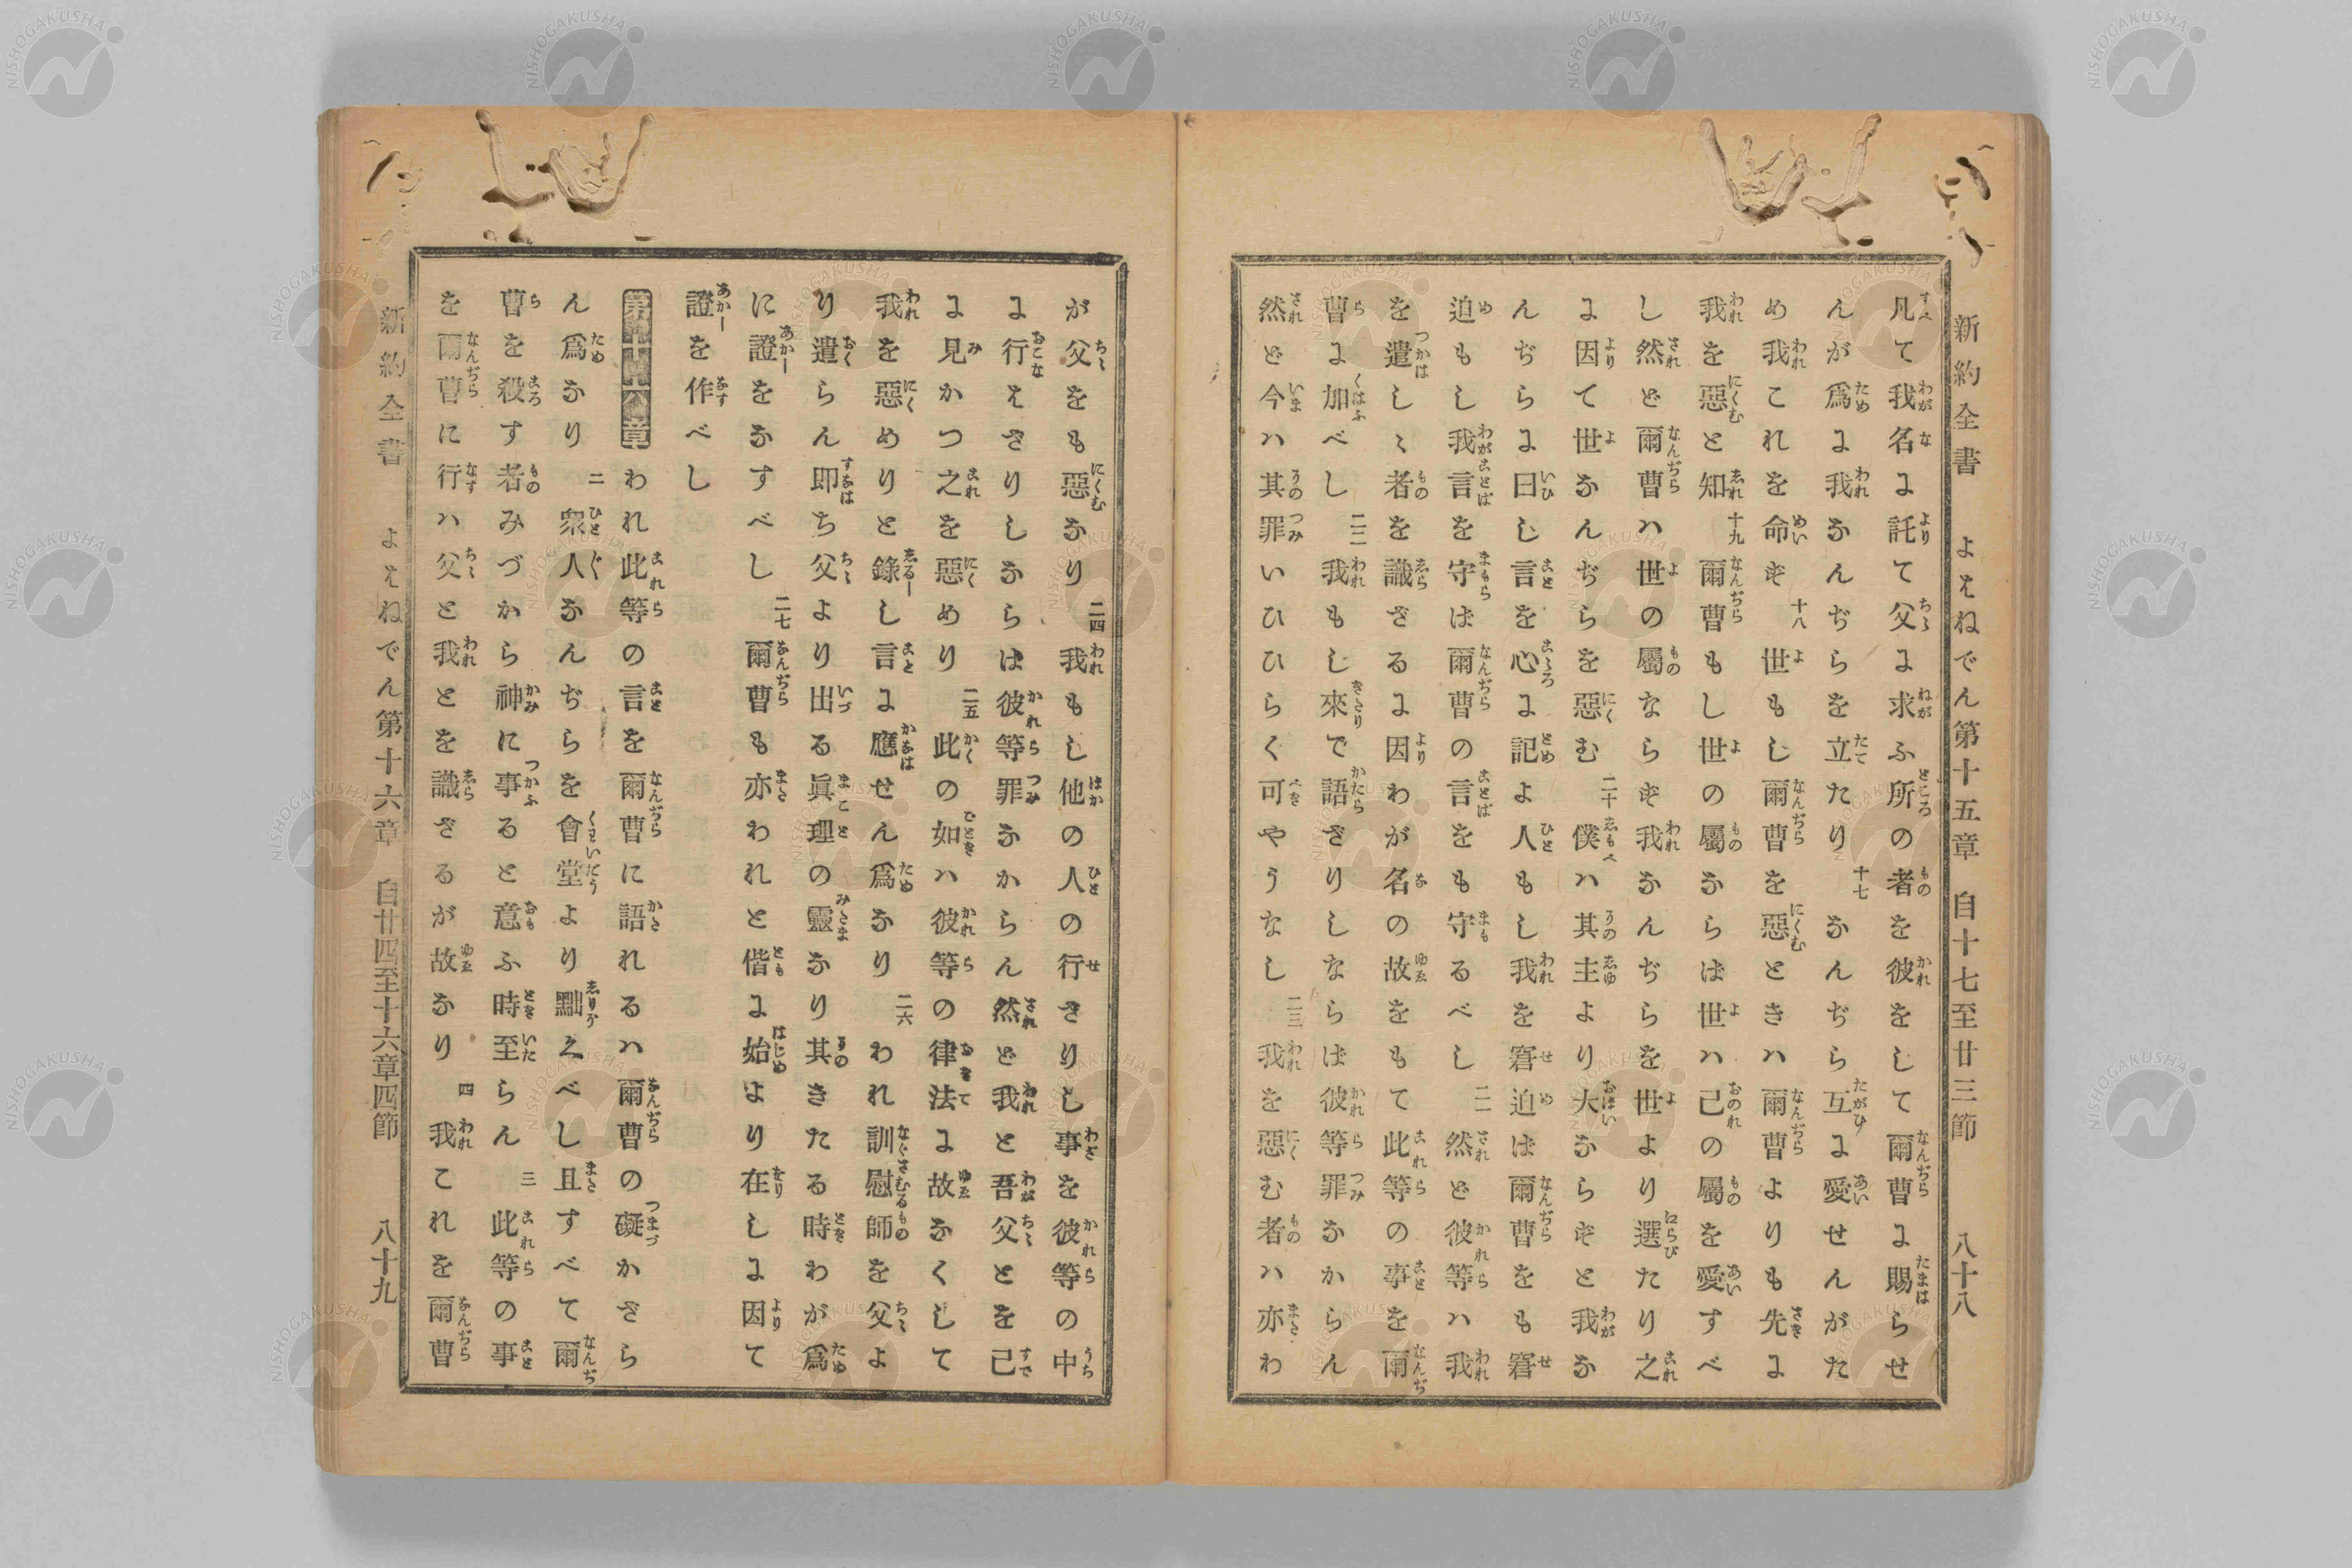 新約全書　よはねでん第十五章　自十七至廿三節　八十八
凡て我名に託て父に求ふ所の者を彼をして爾曹に賜らせ
んが爲に我なんぢらを立たり　十七　なんぢら互に愛せんがた
め我これを命ず　十八　世もし爾曹を惡ときハ爾曹よりも先に
我を惡と知　十九　爾曹もし世の屬ならば世ハ己の屬を愛すべ
し然ど爾曹ハ世の屬ならず我なんぢらを世より選たり之
に因て世なんぢらを惡む　二十　僕ハ其主より大ならずと我な
んぢらに曰し言を心に記よ人もし我を窘迫ば爾曹をも窘
迫もし我言を守ば爾曹の言をも守るべし　二一　然ど彼等ハ我
を遣しゝ者を識ざるに因わが名の故をもて此等の事を爾
曹に加べし　二二　我もし來で語ざりしならば彼等罪なからん
然ど今ハ其罪いひひらく可やうなし　二三　我を惡む者ハ亦わ
が父をも惡なり　二四　我もし他の人の行ざりし事を彼等の中
に行はざりしならば彼等罪なからん然ど我と吾父とを己
に見かつ之を惡めり　二五　此の如ハ彼等の律法に故なくして
我を惡めりと錄し言に應せん爲なり　二六　われ訓慰師を父よ
り遣らん即ち父より出る眞理の靈なり其きたる時わが爲
に證をなすべし　二七　爾曹も亦われと偕に始より在しに因て
證を作べし
第十六章　われ此等の言を爾曹に語れるハ爾曹の礙かざら
ん爲なり　二　衆人なんぢらを會堂より黜くべし且すべて爾
曹を殺す者みづから神に事ると意ふ時至らん　三　此等の事
を爾曹に行ハ父と我とを識ざるが故なり　四　我これを爾曹
新約全書　よはねでん第十六章　自廿四至十六章四節　八十九